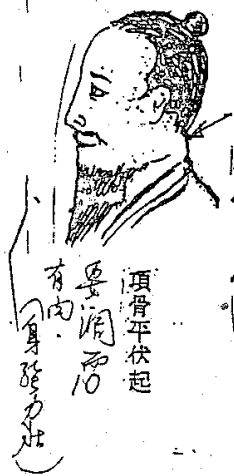 項骨平伏起
要潤而
有肉．
(身強力壯)
二、